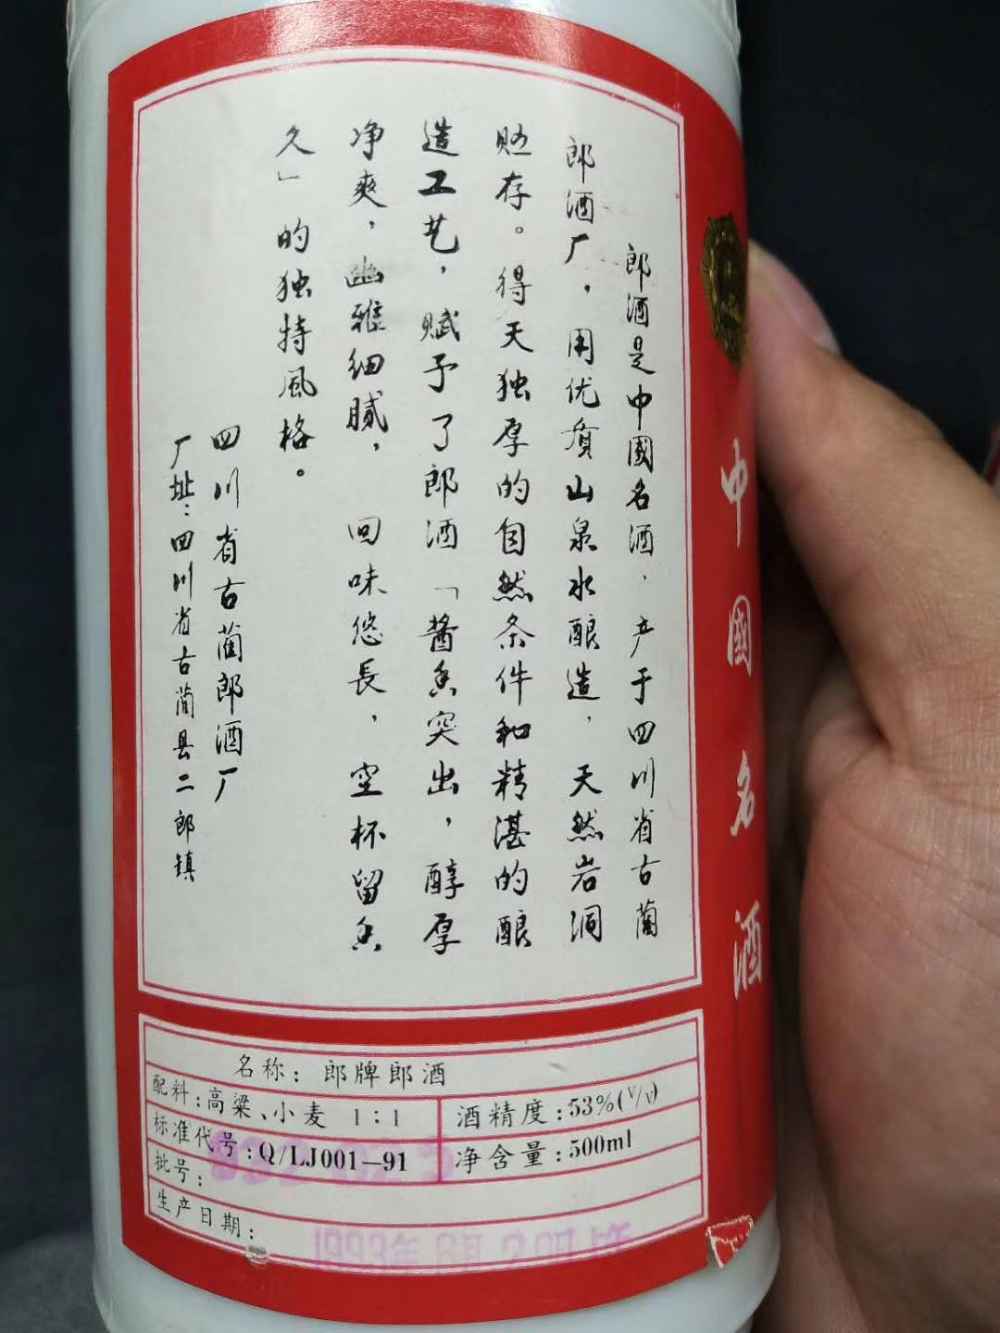 郎酒是中國名酒，产于四川省古蔺
郎酒厂，用优质山泉水酿造，天然岩洞
贮存。得天独厚的自然条件和精湛的酿
造工艺，赋予了郎酒「酱香突出，醇厚
净爽，幽雅细腻，回味悠長，空杯留香
久」的独特風格。
四川省古蔺郎酒厂
厂址：四川省古蔺县二郎镇
中國名酒
名称：郎牌郎酒
配料：高粱、小麦 1：1
酒精度：53%(V/V)
标准代号：Q/LJ001—91
净含量：500ml
批号：
生产日期：
1993年6月